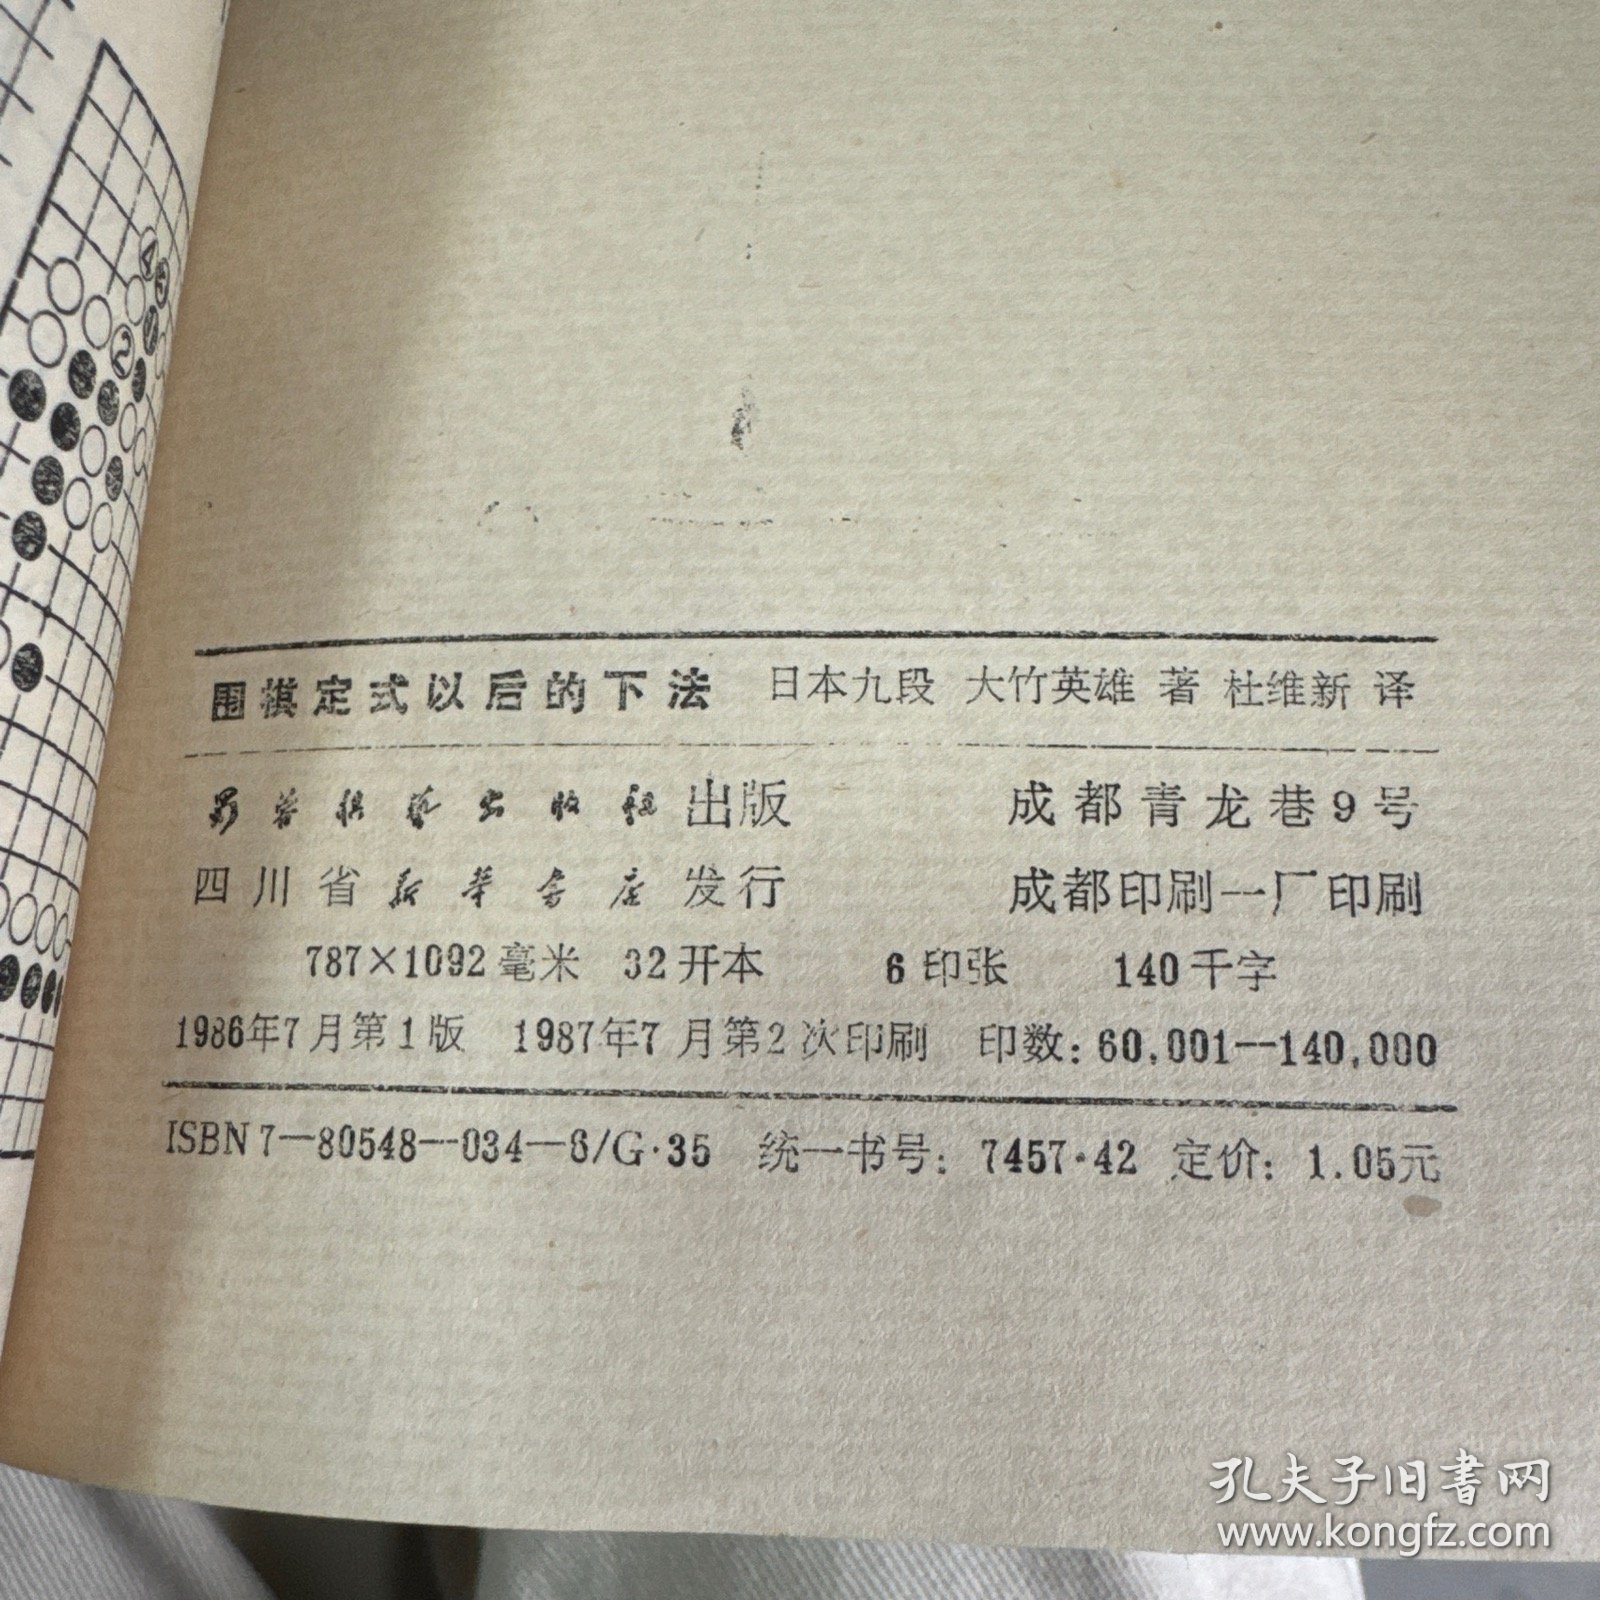 围棋定式以后的下法 日本九段 大竹英雄 著 杜维新 译
蜀蓉棋艺出版社 出版 成都青龙巷9号
四川省新华书店 发行 成都印刷一厂印刷
787×1092毫米 32开本 6印张 140千字
1986年7月第1版 1987年7月第2次印刷 印数：60,001—140,000
ISBN7—80548—034—6/G·35 统一书号：7457·42 定价：1.05元
孔夫子旧书网
www.kongfz.com